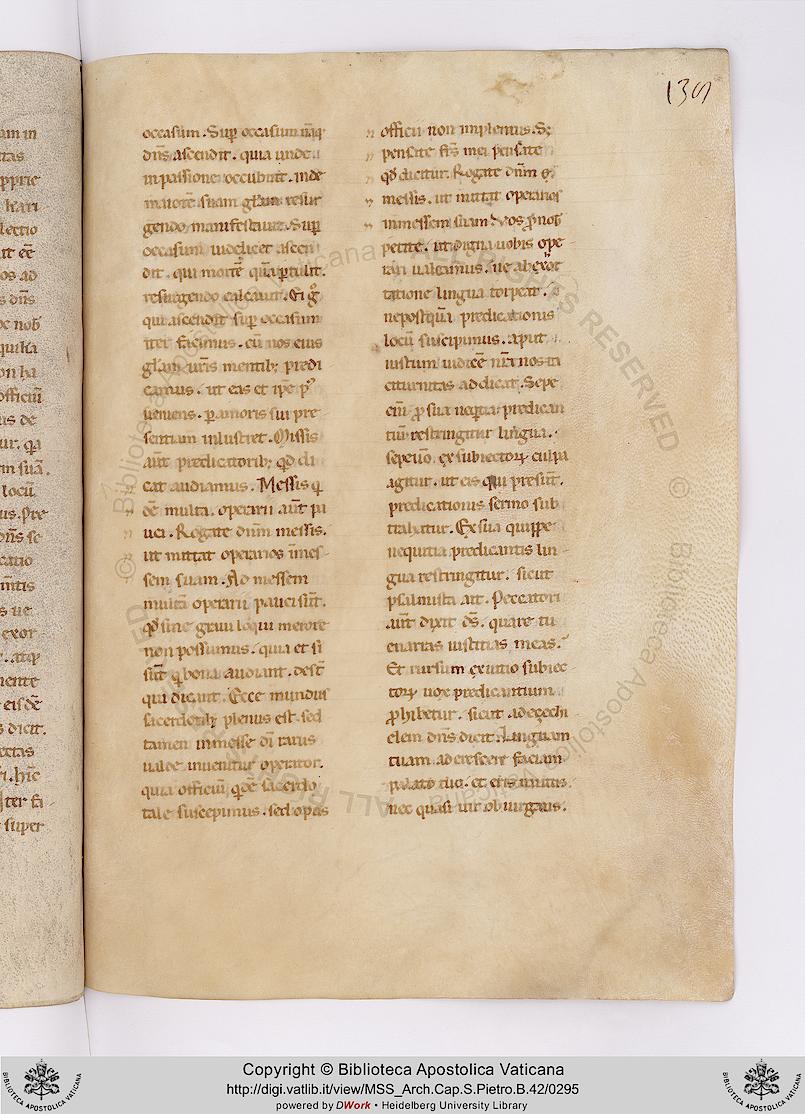 139
am in
tas
pprie
kari
lectio
ut eē
os ad
s dn̄s
oc nob̄
quilla
on ha
officiū
us de
ur. qa
m suā.
locū
us. Pre
dn̄s se
catio
m̄tis
s ue
exor
. atqꝫ
mente
eis dē
s dicit.
ectas
ri. hīc
Iter fa
super
occasum. Sup̄ occasum nāqꝫ
dn̄s ascendit. quia unde
in passione occubuit. inde
maiorē suam gl̄am resur
gendo manifestauit. Sup̄
occasum uidelicet ascen
dit. qui mortē quā ꝑtulit.
resurgendo calcauit. Ei gͦ
qui ascendit sup̄ occasum
iter facimus. cū nos eius
gl̄am ur̄is mentibꝫ predi
camus. ut eas et ip̄e pꝰ
ueniens. ꝑ amoris sui pre
sentiam inlustret. Missis
aūt predicatoribꝫ qd̄ di
cat audiamus. Messis q
dē multa. operarii aūt pa
uci. Rogate dn̄m messis.
ut mittat operarios īmes
sem suam. Ad messem
multā operarii pauci sūt.
qd̄ sine graui loqui merore
non possumus. quia et si
sūt q̄ bona audiant. desūt
qui dicant. Ecce mundus
sacerdotibꝫ plenus est. sed
tamen in messe dī rarus
ualde inuenitur operator.
quia officiū q̄dē sacerdo
tale suscepimus. sed opus
officii non implemus. Sꝫ
pensate frs̄ mei pensate
qd̄ dicitur. Rogate dn̄m
messis. ut mittat operarios
in messem suam. Vos ꝓ nob̄
petite. ut digna uobis ope
rari ualeamus. ne ab exor
tatione lingua torpeat.
ne postquā predicationis
locū suscipimus. aput
iustum iudicē nrā nos ta
citurnitas addicat. Sepe
eni ꝓ sua neqtia predican
tiū restringitur lingua.
sepe uō ex subiectoꝝ culpa
agitur. ut eis qui presunt.
predicationis sermo sub
trahatur. Ex sua quippe
nequitia predicantis lin
gua restringitur. sicut
psalmista ait. Peccatori
aūt dixit ds̄. quare tu
enarras iustitias meas.
Et rursum ex uitio subiec
toꝝ uox predicantium
ꝓhibetur. sicut ad ezechi
elem dn̄s dicit. Linguam
tuam aderescere faciam
palato tuo. et eris mutus.
nec quasi uir obiurgans.
Copyright © Biblioteca Apostolica Vaticana
http://digi.vatlib.it/view/MSS_Arch.Cap.S.Pietro.B.42/0295
powered by DWork • Heidelberg University Library